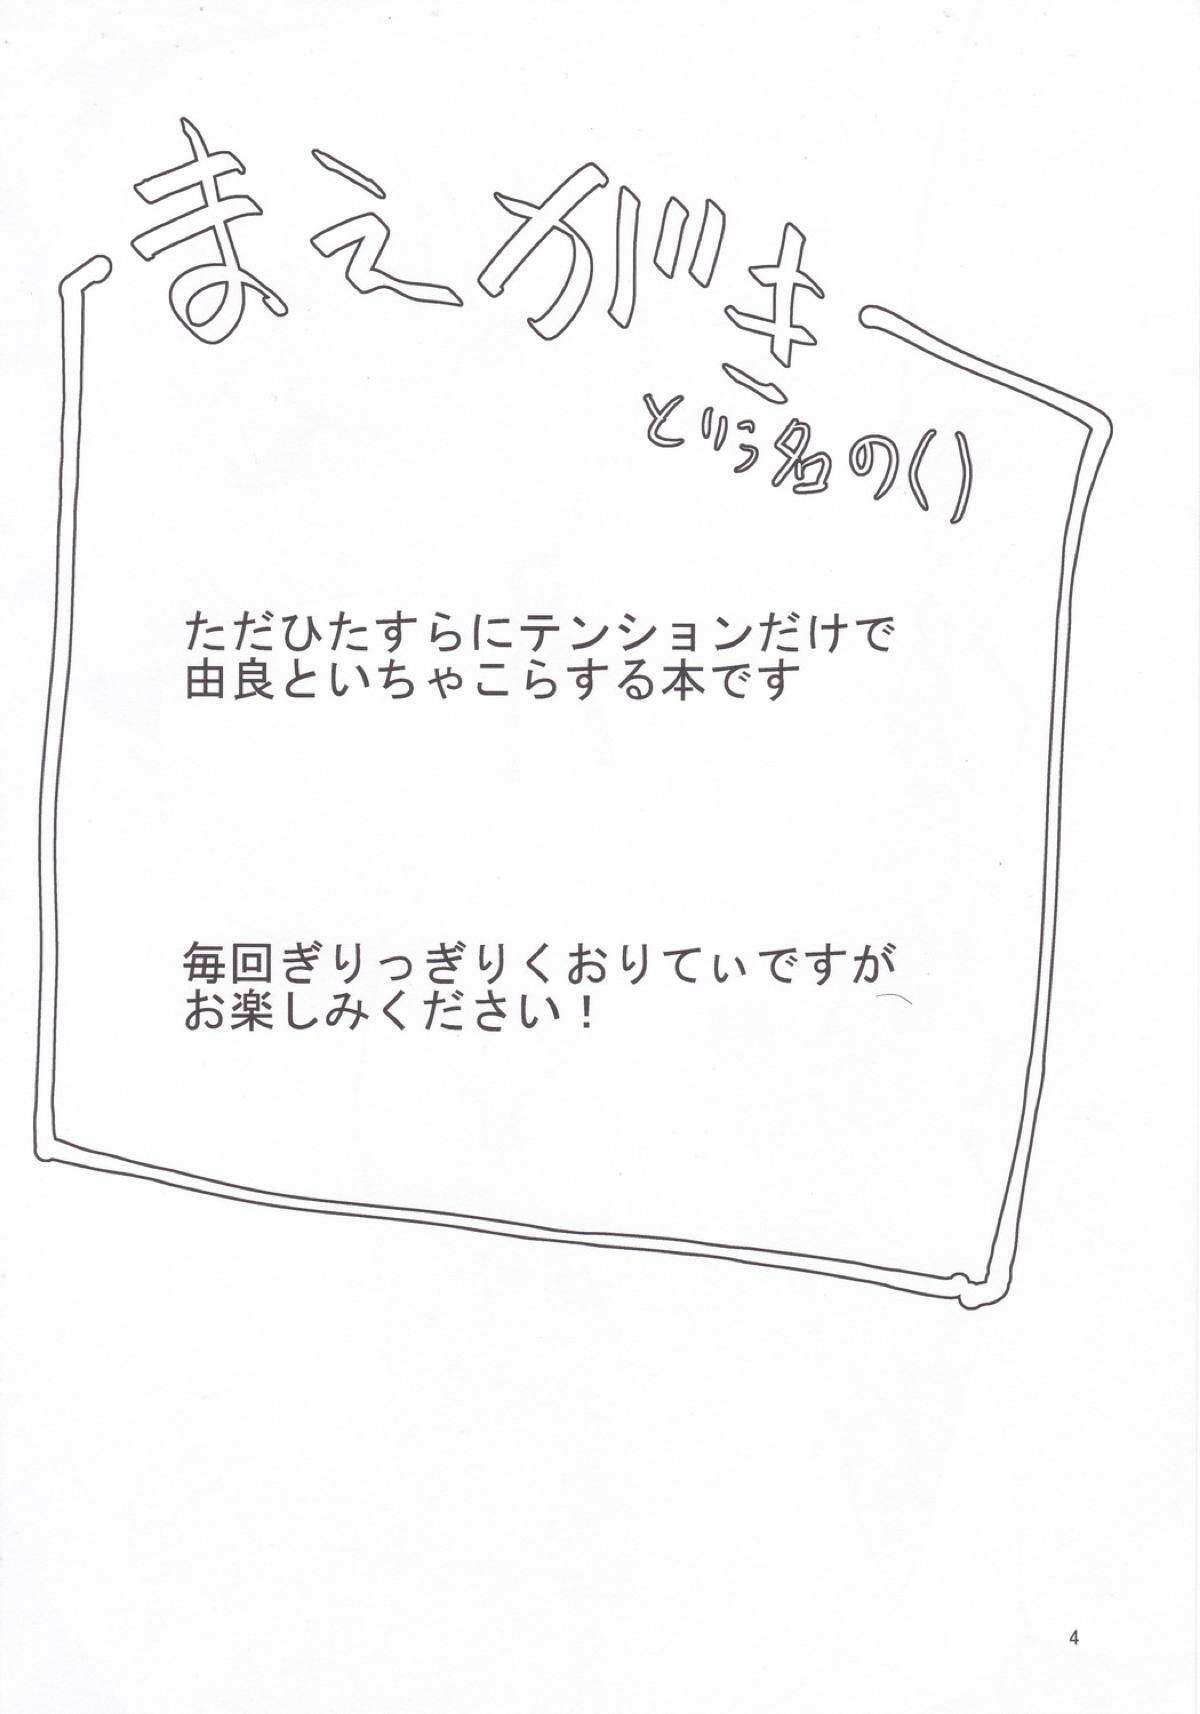 まえがき
という名の( )
ただひたすらにテンションだけで
由良といちゃこらする本です
毎回ぎりっぎりくおりてぃですが
お楽しみください！
4